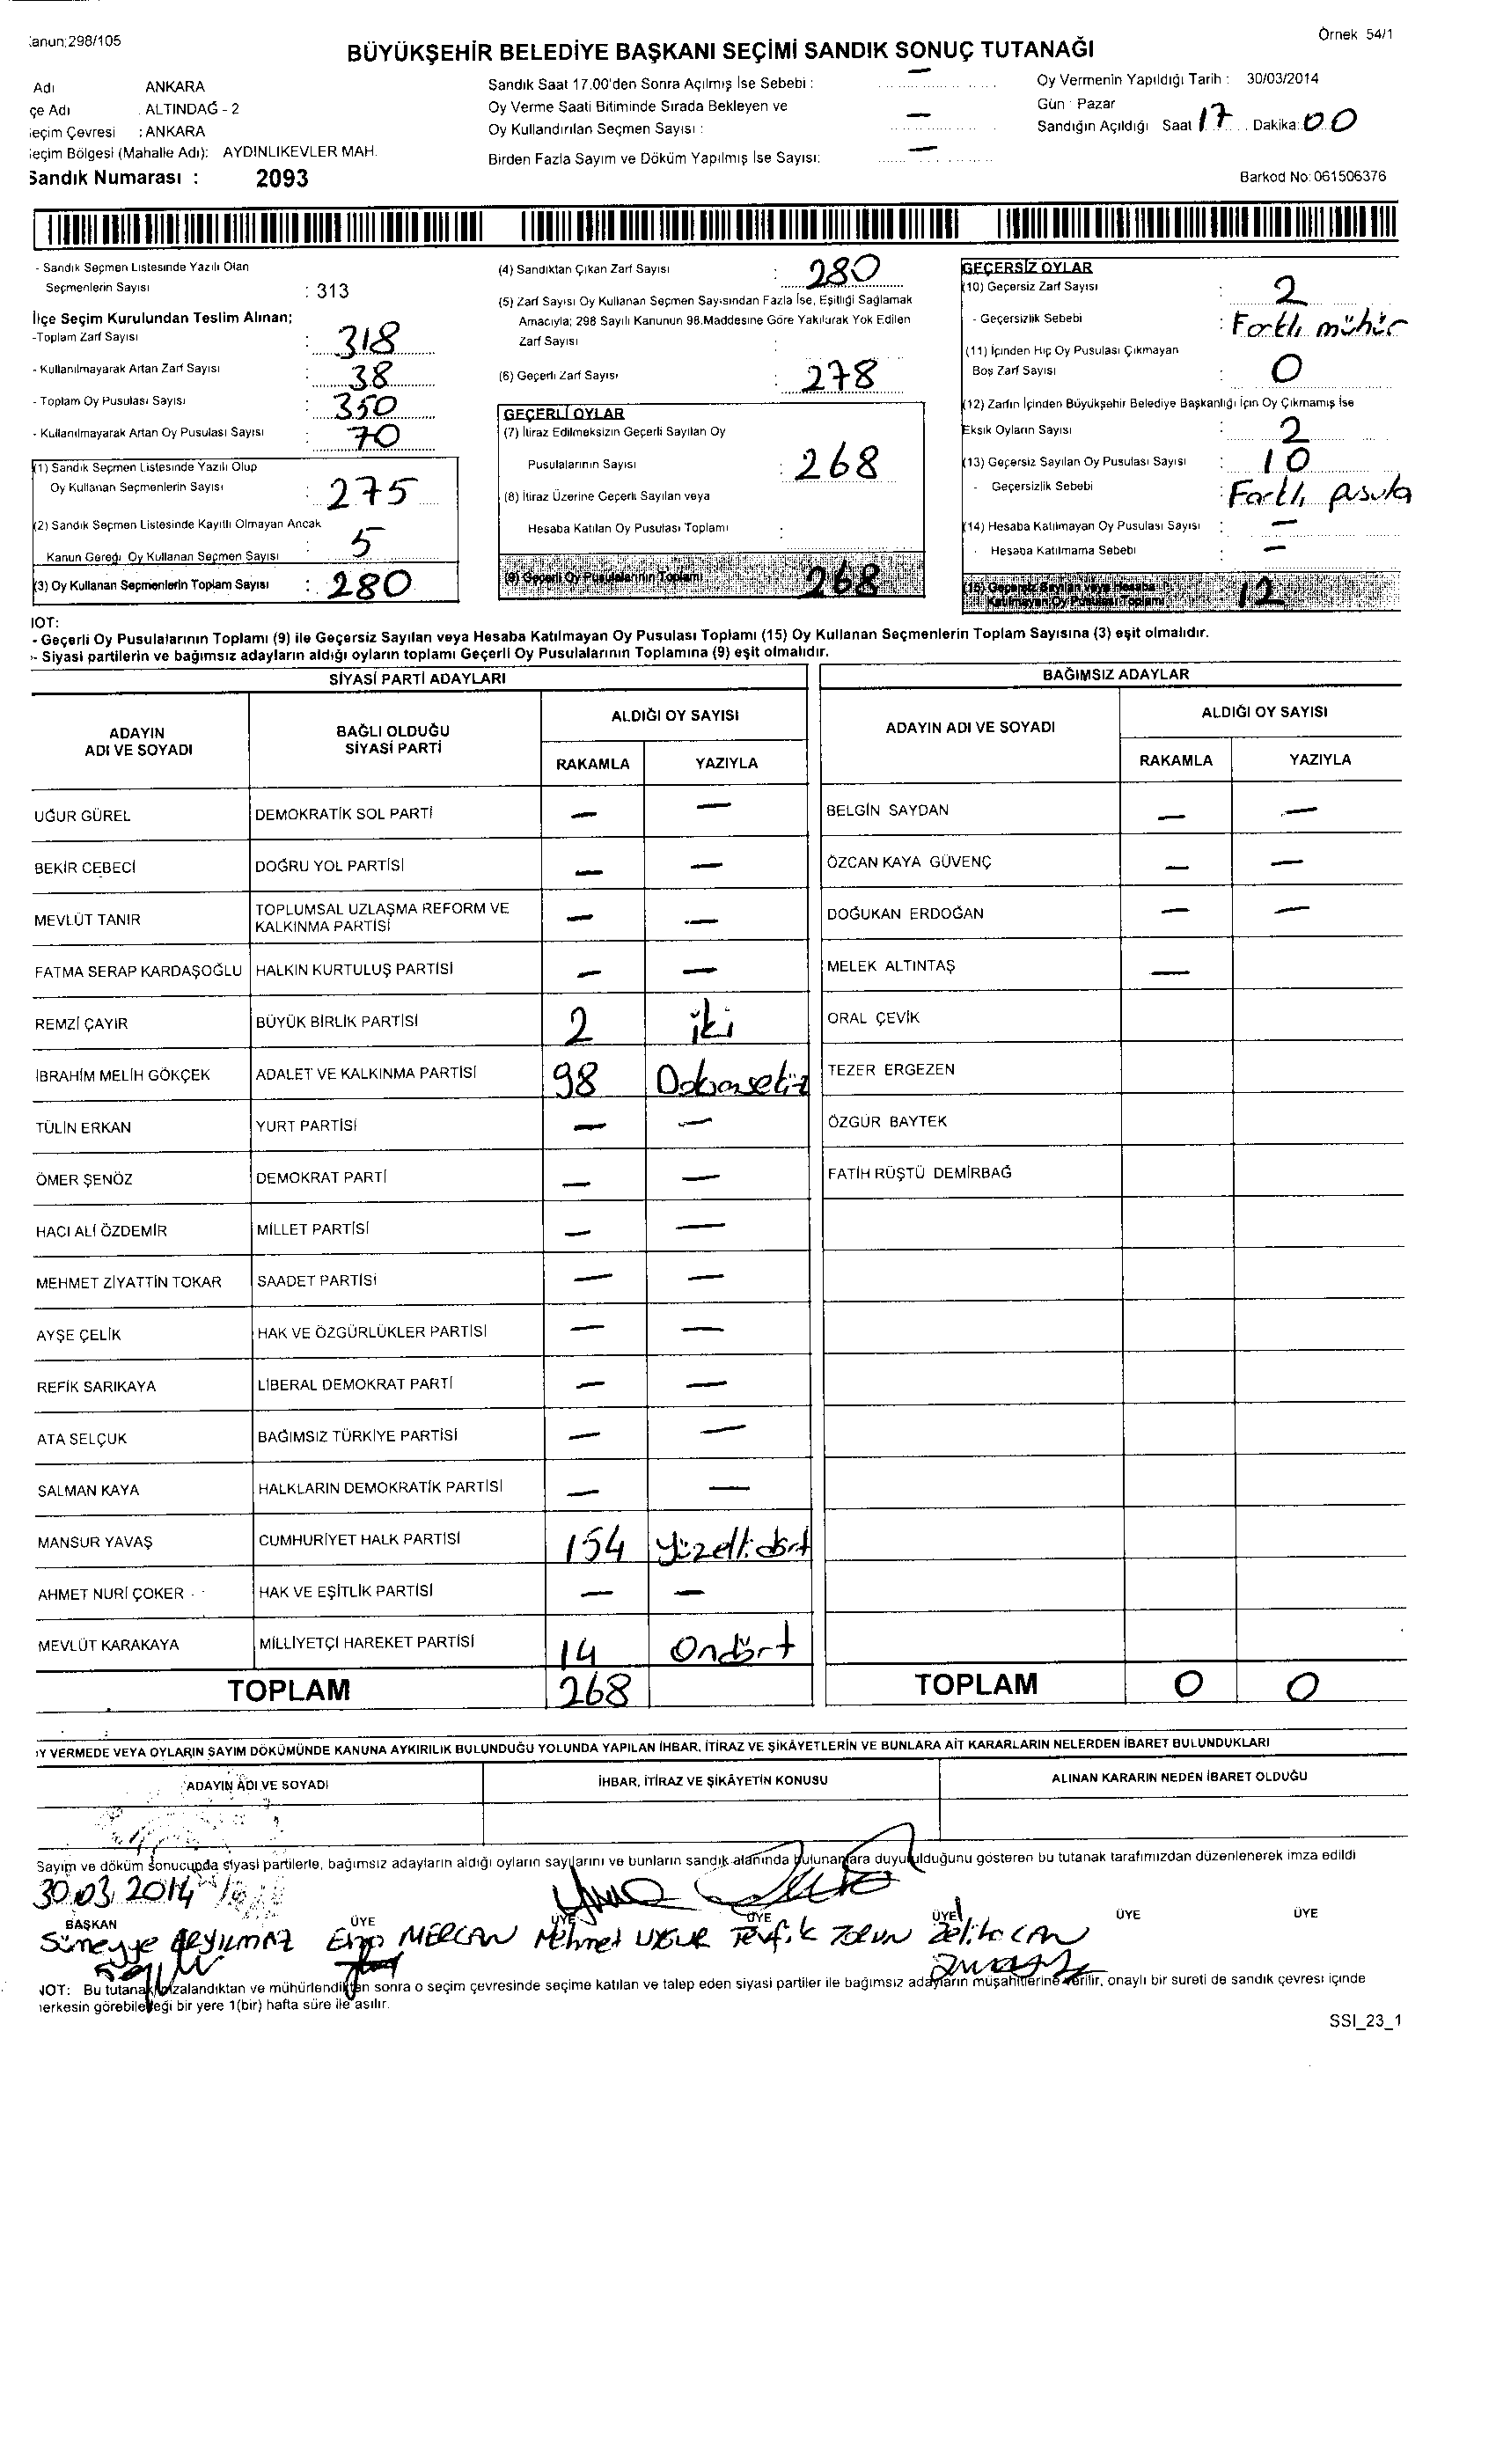 anun;298/105
Örnek 54/1
BÜYÜKŞEHİR BELEDİYE BAŞKANI SEÇİMİ SANDIK SONUÇ TUTANAĞI
Adı ANKARA
çe Adı ALTINDAĞ - 2
eçim Çevresi : ANKARA
eçim Bölgesi (Mahalle Adı): AYDINLIKEVLER MAH.
Sandık Numarası : 2093
Sandık Saat 17.00'den Sonra Açılmış İse Sebebi : —
Oy Verme Saati Bitiminde Sırada Bekleyen ve
Oy Kullandırılan Seçmen Sayısı : —
Birden Fazla Sayım ve Döküm Yapılmış İse Sayısı: —
Oy Vermenin Yapıldığı Tarih : 30/03/2014
Gün : Pazar
Sandığın Açıldığı Saat 17 Dakika: 00
Barkod No: 061506376
- Sandık Seçmen Listesinde Yazılı Olan
Seçmenlerin Sayısı : 313
İlçe Seçim Kurulundan Teslim Alınan;
-Toplam Zarf Sayısı : 318
- Kullanılmayarak Artan Zarf Sayısı : 38
- Toplam Oy Pusulası Sayısı : 350
- Kullanılmayarak Artan Oy Pusulası Sayısı : 70
(1) Sandık Seçmen Listesinde Yazılı Olup
Oy Kullanan Seçmenlerin Sayısı : 275
(2) Sandık Seçmen Listesinde Kayıtlı Olmayan Ancak
Kanun Gereği Oy Kullanan Seçmen Sayısı : 5
(3) Oy Kullanan Seçmenlerin Toplam Sayısı : 280
(4) Sandıktan Çıkan Zarf Sayısı : 280
(5) Zarf Sayısı Oy Kullanan Seçmen Sayısından Fazla İse, Eşitliği Sağlamak
Amacıyla; 298 Sayılı Kanunun 98.Maddesine Göre Yakılarak Yok Edilen
Zarf Sayısı :
(6) Geçerli Zarf Sayısı : 278
GEÇERLİ OYLAR
(7) İtiraz Edilmeksizin Geçerli Sayılan Oy
Pusulalarının Sayısı : 268
(8) İtiraz Üzerine Geçerli Sayılan veya
Hesaba Katılan Oy Pusulası Toplamı :
(9) Geçerli Oy Pusulalarının Toplamı 268
GEÇERSİZ OYLAR
(10) Geçersiz Zarf Sayısı : 2
- Geçersizlik Sebebi : Farklı mühür
(11) İçinden Hiç Oy Pusulası Çıkmayan
Boş Zarf Sayısı : 0
(12) Zarfın İçinden Büyükşehir Belediye Başkanlığı İçin Oy Çıkmamış İse
Eksik Oyların Sayısı : 2
(13) Geçersiz Sayılan Oy Pusulası Sayısı : 10
- Geçersizlik Sebebi : Farklı pusula
(14) Hesaba Katılmayan Oy Pusulası Sayısı : —
- Hesaba Katılmama Sebebi : —
(15) Geçersiz Sayılan veya Hesaba
Katılmayan Oy Pusulası Toplamı 12
IOT:
- Geçerli Oy Pusulalarının Toplamı (9) ile Geçersiz Sayılan veya Hesaba Katılmayan Oy Pusulası Toplamı (15) Oy Kullanan Seçmenlerin Toplam Sayısına (3) eşit olmalıdır.
- Siyasi partilerin ve bağımsız adayların aldığı oyların toplamı Geçerli Oy Pusulalarının Toplamına (9) eşit olmalıdır.
SİYASİ PARTİ ADAYLARI
ADAYIN ADI VE SOYADI BAĞLI OLDUĞU SİYASİ PARTİ ALDIĞI OY SAYISI
RAKAMLA YAZIYLA
UĞUR GÜREL DEMOKRATİK SOL PARTİ — —
BEKİR CEBECİ DOĞRU YOL PARTİSİ — —
MEVLÜT TANIR TOPLUMSAL UZLAŞMA REFORM VE KALKINMA PARTİSİ — —
FATMA SERAP KARDAŞOĞLU HALKIN KURTULUŞ PARTİSİ — —
REMZİ ÇAYIR BÜYÜK BİRLİK PARTİSİ 2 iki
İBRAHİM MELİH GÖKÇEK ADALET VE KALKINMA PARTİSİ 98
TÜLİN ERKAN YURT PARTİSİ — —
ÖMER ŞENÖZ DEMOKRAT PARTİ — —
HACI ALİ ÖZDEMİR MİLLET PARTİSİ — —
MEHMET ZİYATTİN TOKAR SAADET PARTİSİ — —
AYŞE ÇELİK HAK VE ÖZGÜRLÜKLER PARTİSİ — —
REFİK SARIKAYA LİBERAL DEMOKRAT PARTİ — —
ATA SELÇUK BAĞIMSIZ TÜRKİYE PARTİSİ — —
SALMAN KAYA HALKLARIN DEMOKRATİK PARTİSİ — —
MANSUR YAVAŞ CUMHURİYET HALK PARTİSİ 154 yüzellidört
AHMET NURİ ÇOKER HAK VE EŞİTLİK PARTİSİ — —
MEVLÜT KARAKAYA MİLLİYETÇİ HAREKET PARTİSİ 14 Ondört
TOPLAM 268
BAĞIMSIZ ADAYLAR
ADAYIN ADI VE SOYADI ALDIĞI OY SAYISI
RAKAMLA YAZIYLA
BELGİN SAYDAN — —
ÖZCAN KAYA GÜVENÇ — —
DOĞUKAN ERDOĞAN — —
MELEK ALTINTAŞ —
ORAL ÇEVİK
TEZER ERGEZEN
ÖZGÜR BAYTEK
FATİH RÜŞTÜ DEMİRBAĞ
TOPLAM 0 0
Y VERMEDE VEYA OYLARIN SAYIM DÖKÜMÜNDE KANUNA AYKIRILIK BULUNDUĞU YOLUNDA YAPILAN İHBAR, İTİRAZ VE ŞİKÂYETLERİN VE BUNLARA AİT KARARLARIN NELERDEN İBARET BULUNDUKLARI
ADAYIN ADI VE SOYADI İHBAR, İTİRAZ VE ŞİKÂYETİN KONUSU ALINAN KARARIN NEDEN İBARET OLDUĞU
Sayım ve döküm sonucunda siyasi partilerle, bağımsız adayların aldığı oyların sayılarını ve bunların sandık alanında bulunanlara duyurulduğunu gösteren bu tutanak tarafımızdan düzenlenerek imza edildi
30.03.2014
BAŞKAN ÜYE ÜYE ÜYE ÜYE ÜYE ÜYE
MERCAN Mehmet UĞUR Tevfik CAN
IOT: Bu tutanak imzalandıktan ve mühürlendikten sonra o seçim çevresinde seçime katılan ve talep eden siyasi partiler ile bağımsız adayların müşahitlerine verilir, onaylı bir sureti de sandık çevresi içinde
erkesin görebileceği bir yere 1(bir) hafta süre ile asılır.
SSI_23_1